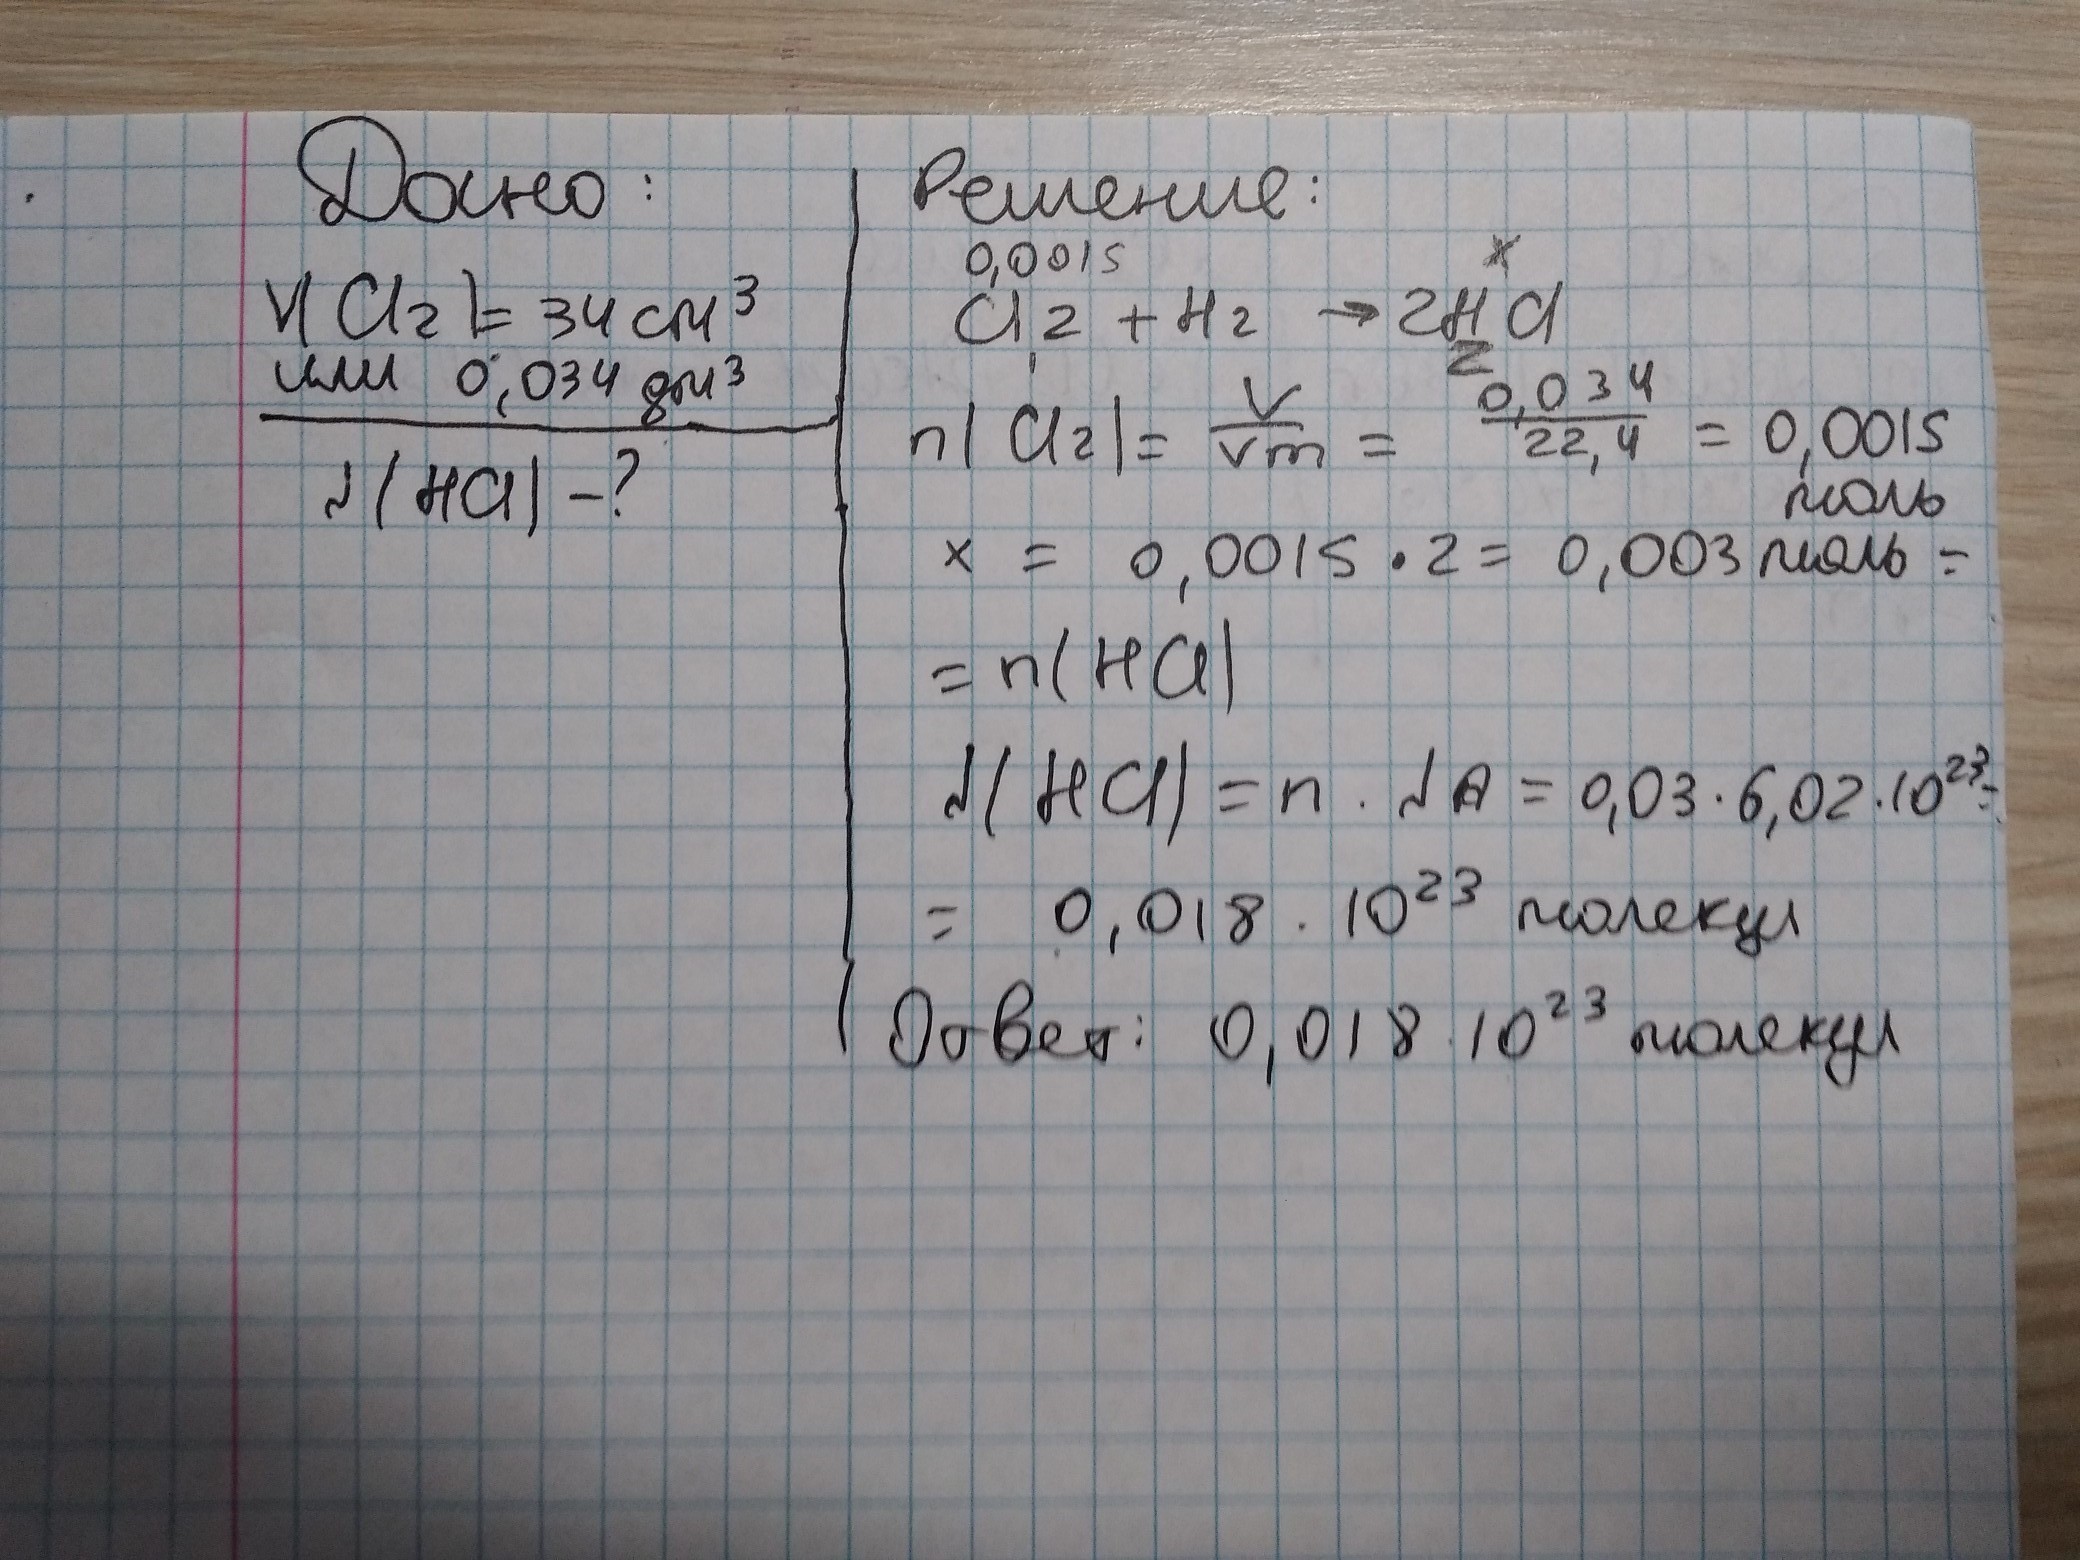 Дано:
V(Cl2)= 34 см³
или 0,034 дм³
N(HCl) -?
Решение:
0,0015 x
Cl2 + H2 → 2HCl
1 2
n(Cl2)= V/Vm = 0,034/22,4 = 0,0015
моль
x = 0,0015 · 2 = 0,003 моль =
= n(HCl)
N(HCl) = n · NA = 0,03 · 6,02 · 10²³ =
= 0,018 · 10²³ молекул
Ответ: 0,018 · 10²³ молекул